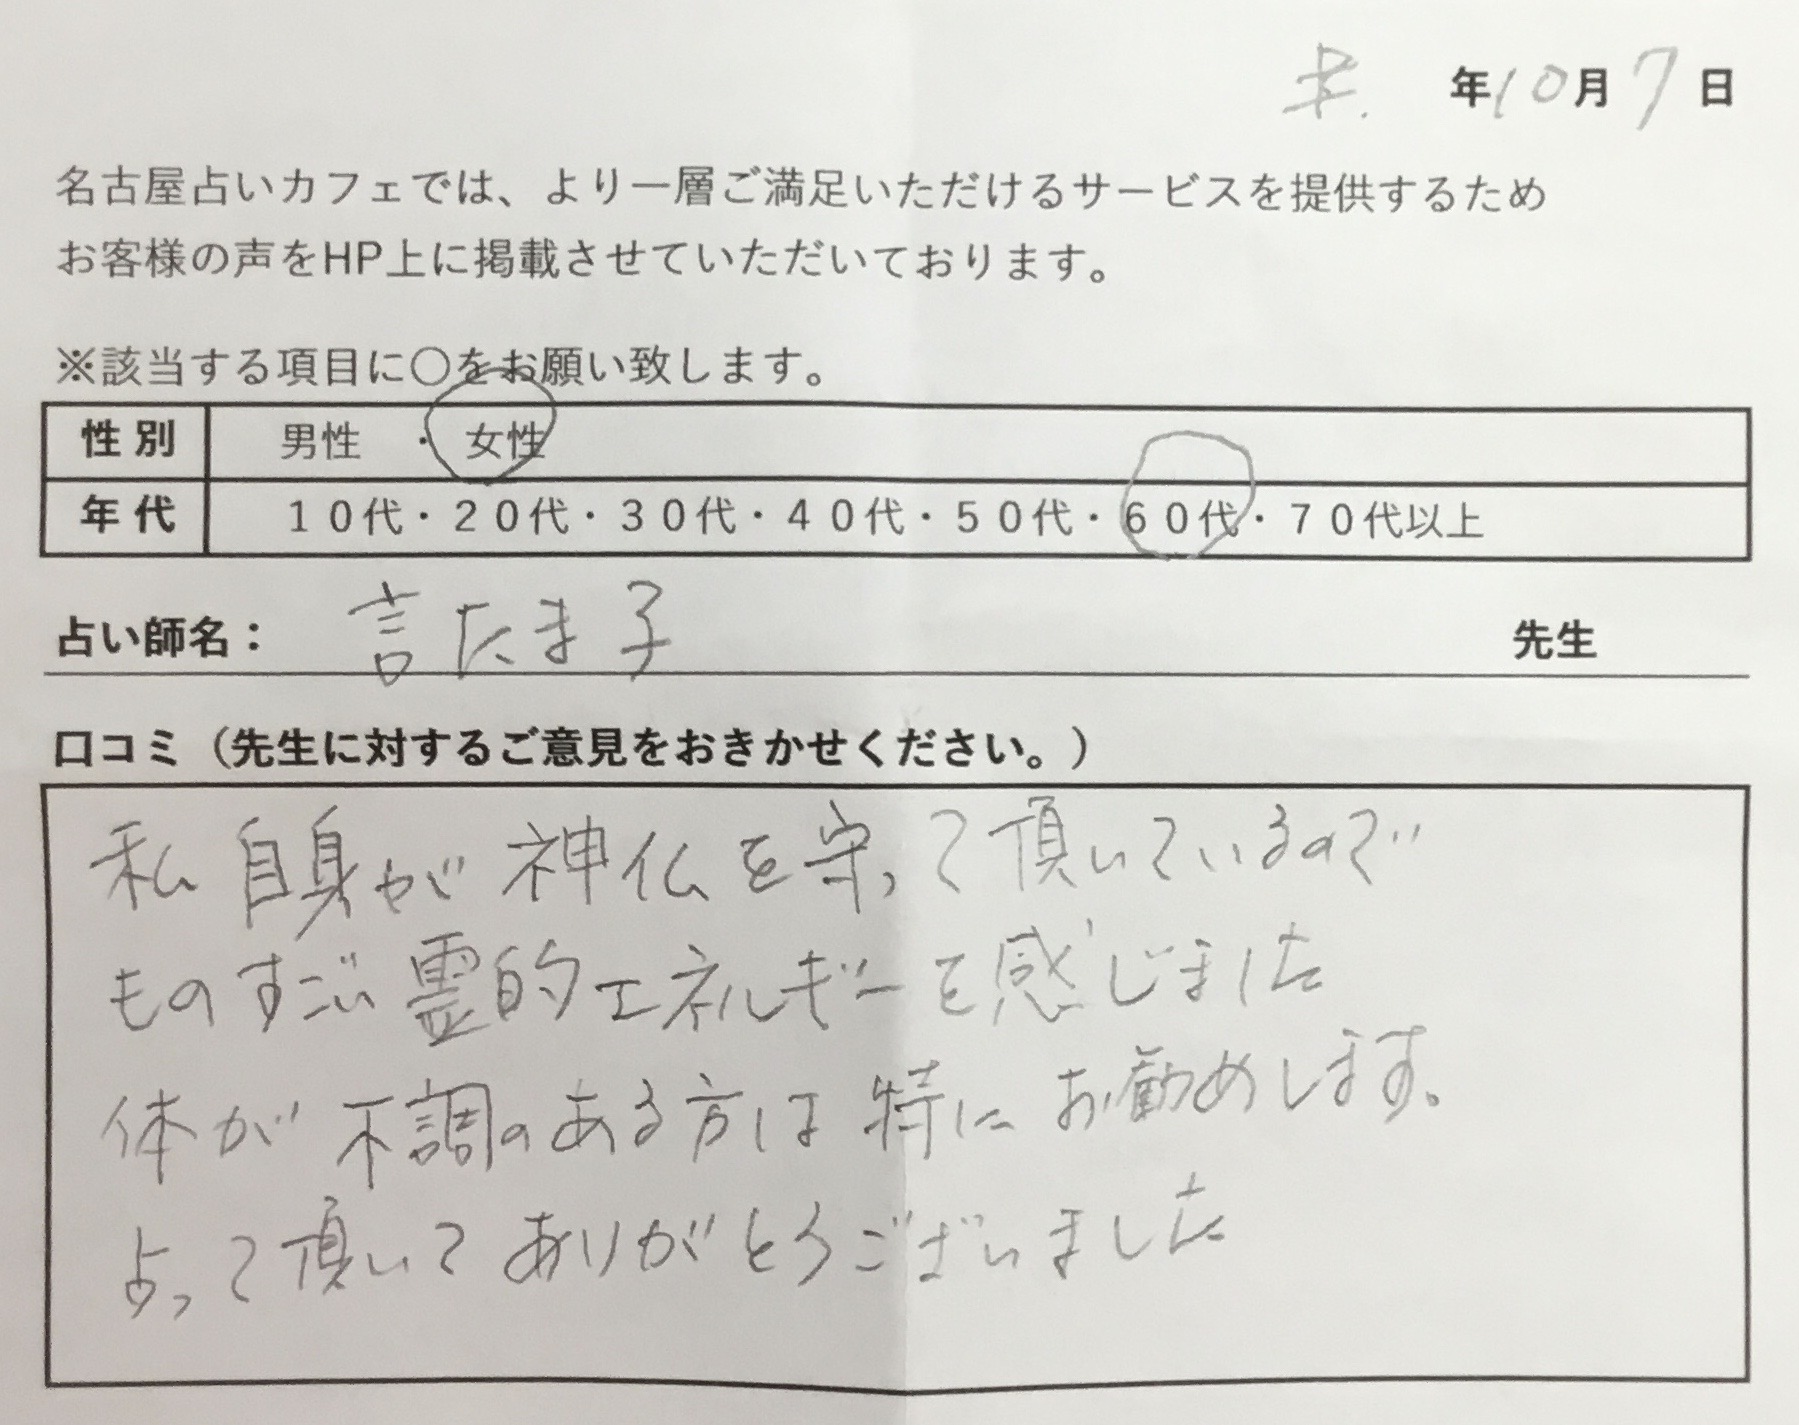 年10月7日
名古屋占いカフェでは、より一層ご満足いただけるサービスを提供するため
お客様の声をHP上に掲載させていただいております。
※該当する項目に〇をお願い致します。
性別 男性 ・ 女性
年代 10代・20代・30代・40代・50代・60代・70代以上
占い師名： 言たま子 先生
口コミ（先生に対するご意見をおきかせください。）
私自身が神仏を守って頂いているので
ものすごい霊的エネルギーを感じました
体が不調のある方は特にお勧めします。
占って頂いてありがとうございました